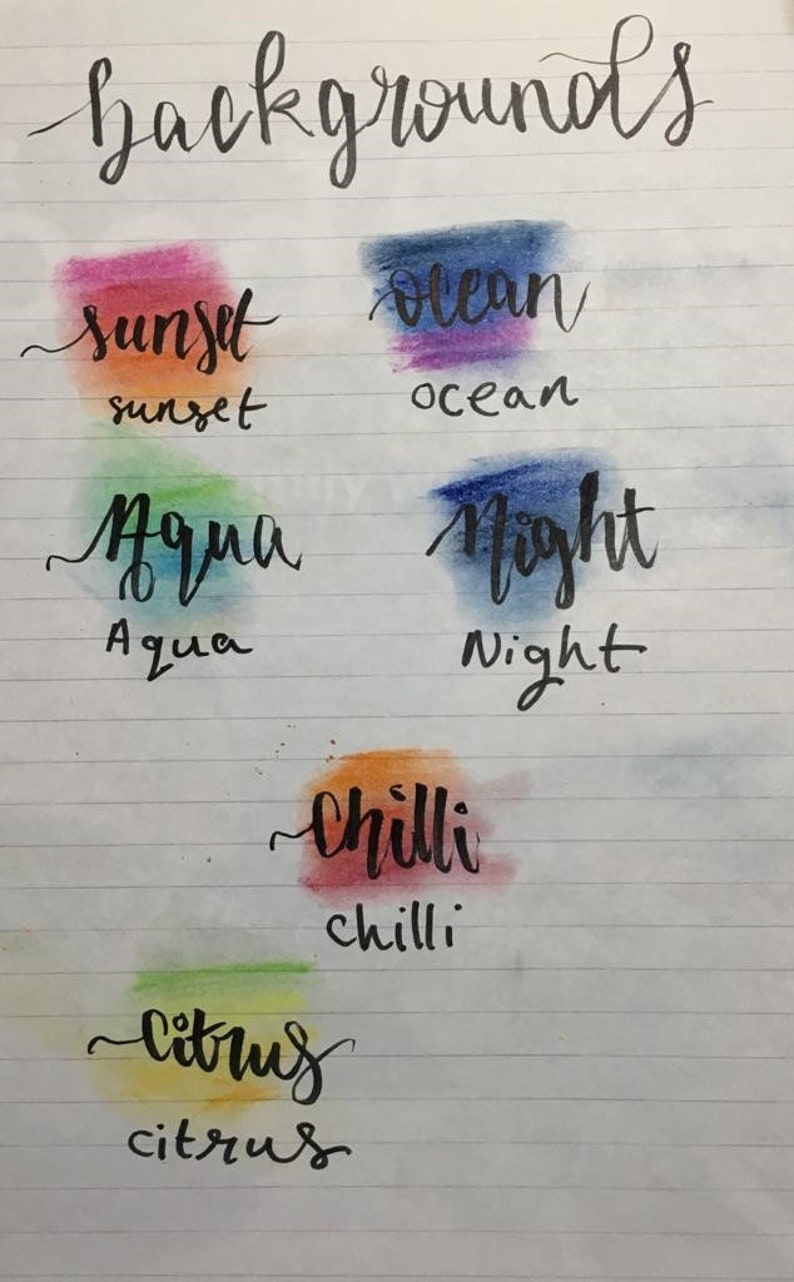 backgrounds
sunset
sunset
ocean
ocean
Aqua
Aqua
Night
Night
chilli
chilli
citrus
citrus